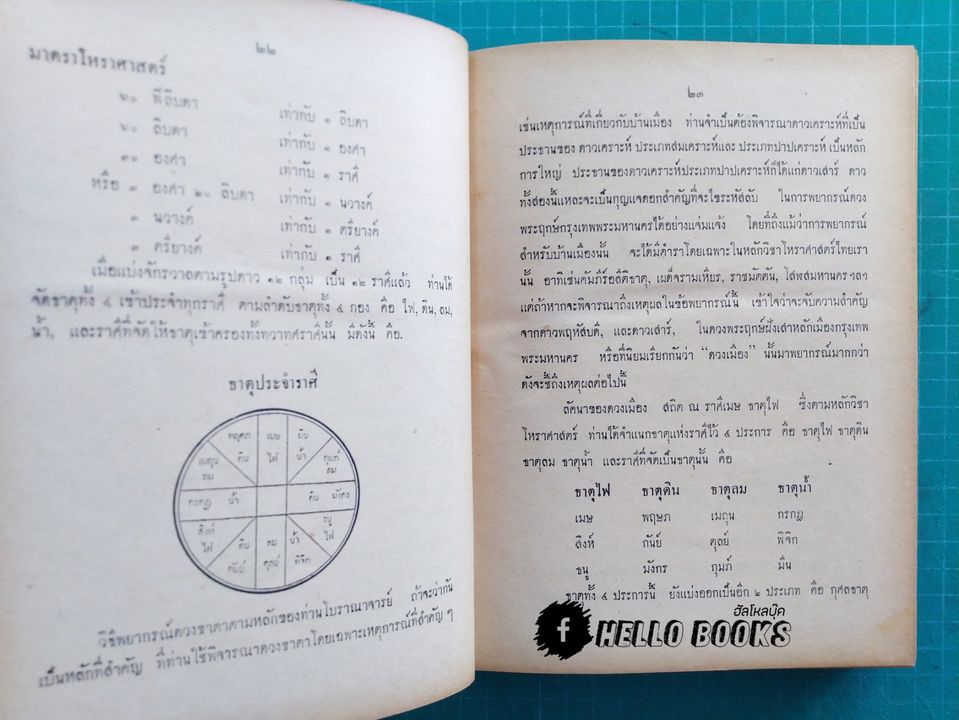 ๒๒
มาตราโหราศาสตร์
๖๐ พิลิบดา เท่ากับ ๑ ลิบดา
๖๐ ลิบดา เท่ากับ ๑ องศา
๓๐ องศา เท่ากับ ๑ ราศี
หรือ ๓ องศา ๒๐ ลิบดา เท่ากับ ๑ นวางค์
๓ นวางค์ เท่ากับ ๑ ตรียางค์
๓ ตรียางค์ เท่ากับ ๑ ราศี
เมื่อแบ่งจักรวาลตามรูปดาว ๑๒ กลุ่ม เป็น ๑๒ ราศีแล้ว ท่านได้
จัดธาตุทั้ง ๔ เข้าประจำทุกราศี ตามลำดับธาตุทั้ง ๔ กอง คือ ไฟ, ดิน, ลม,
น้ำ, และราศีที่จัดให้ธาตุเข้าครองทั้งทวาทศราศีนั้น มีดังนี้ คือ.
ธาตุประจำราศี
พฤศภ เมษ มีน
ดิน ไฟ น้ำ
เมถุน ลม กุมภ์ ลม
กรกฎ น้ำ ดิน มังกร
สิงห์ ไฟ ธนู ไฟ
ดิน ลม น้ำ
กันย์ ตุลย์ พิจิก
วิธีพยากรณ์ดวงชาตาตามหลักของท่านโบราณาจารย์ ถ้าจะว่ากัน
เป็นหลักที่สำคัญ ที่ท่านใช้พิจารณาดวงชาตาโดยเฉพาะเหตุการณ์ที่สำคัญ ๆ
๒๓
เช่นเหตุการณ์ที่เกี่ยวกับบ้านเมือง ท่านจำเป็นต้องพิจารณาดาวเคราะห์ที่เป็น
ประธานของ ดาวเคราะห์ ประเภทสมเคราะห์และ ประเภทปาปเคราะห์ เป็นหลัก
การใหญ่ ประธานของดาวเคราะห์ประเภทปาปเคราะห์ก็ได้แก่ดาวเสาร์ ดาว
ทั้งสองนี้แหละจะเป็นกุญแจดอกสำคัญที่จะไขระหัสลับ ในการพยากรณ์ดวง
พระฤกษ์กรุงเทพพระมหานครได้อย่างแจ่มแจ้ง โดยที่ถึงแม้ว่าการพยากรณ์
สำหรับบ้านเมืองนั้น จะได้มีตำราโดยเฉพาะในหลักวิชาโหราศาสตร์ไทยเรา
นั้น อาทิเช่นคัมภีร์อสีติธาตุ, เผด็จรามเหียร, ราชมัตตัน, โสฬสมหานคร ฯลฯ
แต่ถ้าหากจะพิจารณาถึงเหตุผลในข้อพยากรณ์นี้ เข้าใจว่าจะจับความสำคัญ
จากดาวพฤหัสบดี, และดาวเสาร์, ในดวงพระฤกษ์ฝังเสาหลักเมืองกรุงเทพ
พระมหานคร หรือที่นิยมเรียกกันว่า “ดวงเมือง” นั้นมาพยากรณ์มากกว่า
ดังจะชี้ถึงเหตุผลต่อไปนี้
ลัคนาของดวงเมือง สถิต ณ ราศีเมษ ธาตุไฟ ซึ่งตามหลักวิชา
โหราศาสตร์ ท่านได้จำแนกธาตุแห่งราศีไว้ ๔ ประการ คือ ธาตุไฟ ธาตุดิน
ธาตุลม ธาตุน้ำ และราศีที่จัดเป็นธาตุนั้น คือ
ธาตุไฟ ธาตุดิน ธาตุลม ธาตุน้ำ
เมษ พฤษภ เมถุน กรกฎ
สิงห์ กันย์ ตุลย์ พิจิก
ธนู มังกร กุมภ์ มีน
ธาตุทั้ง ๔ ประการนี้ ยังแบ่งออกเป็นอีก ๒ ประเภท คือ กุศลธาตุ
ฮัลโหลบุ๊ค
f HELLO BOOKS